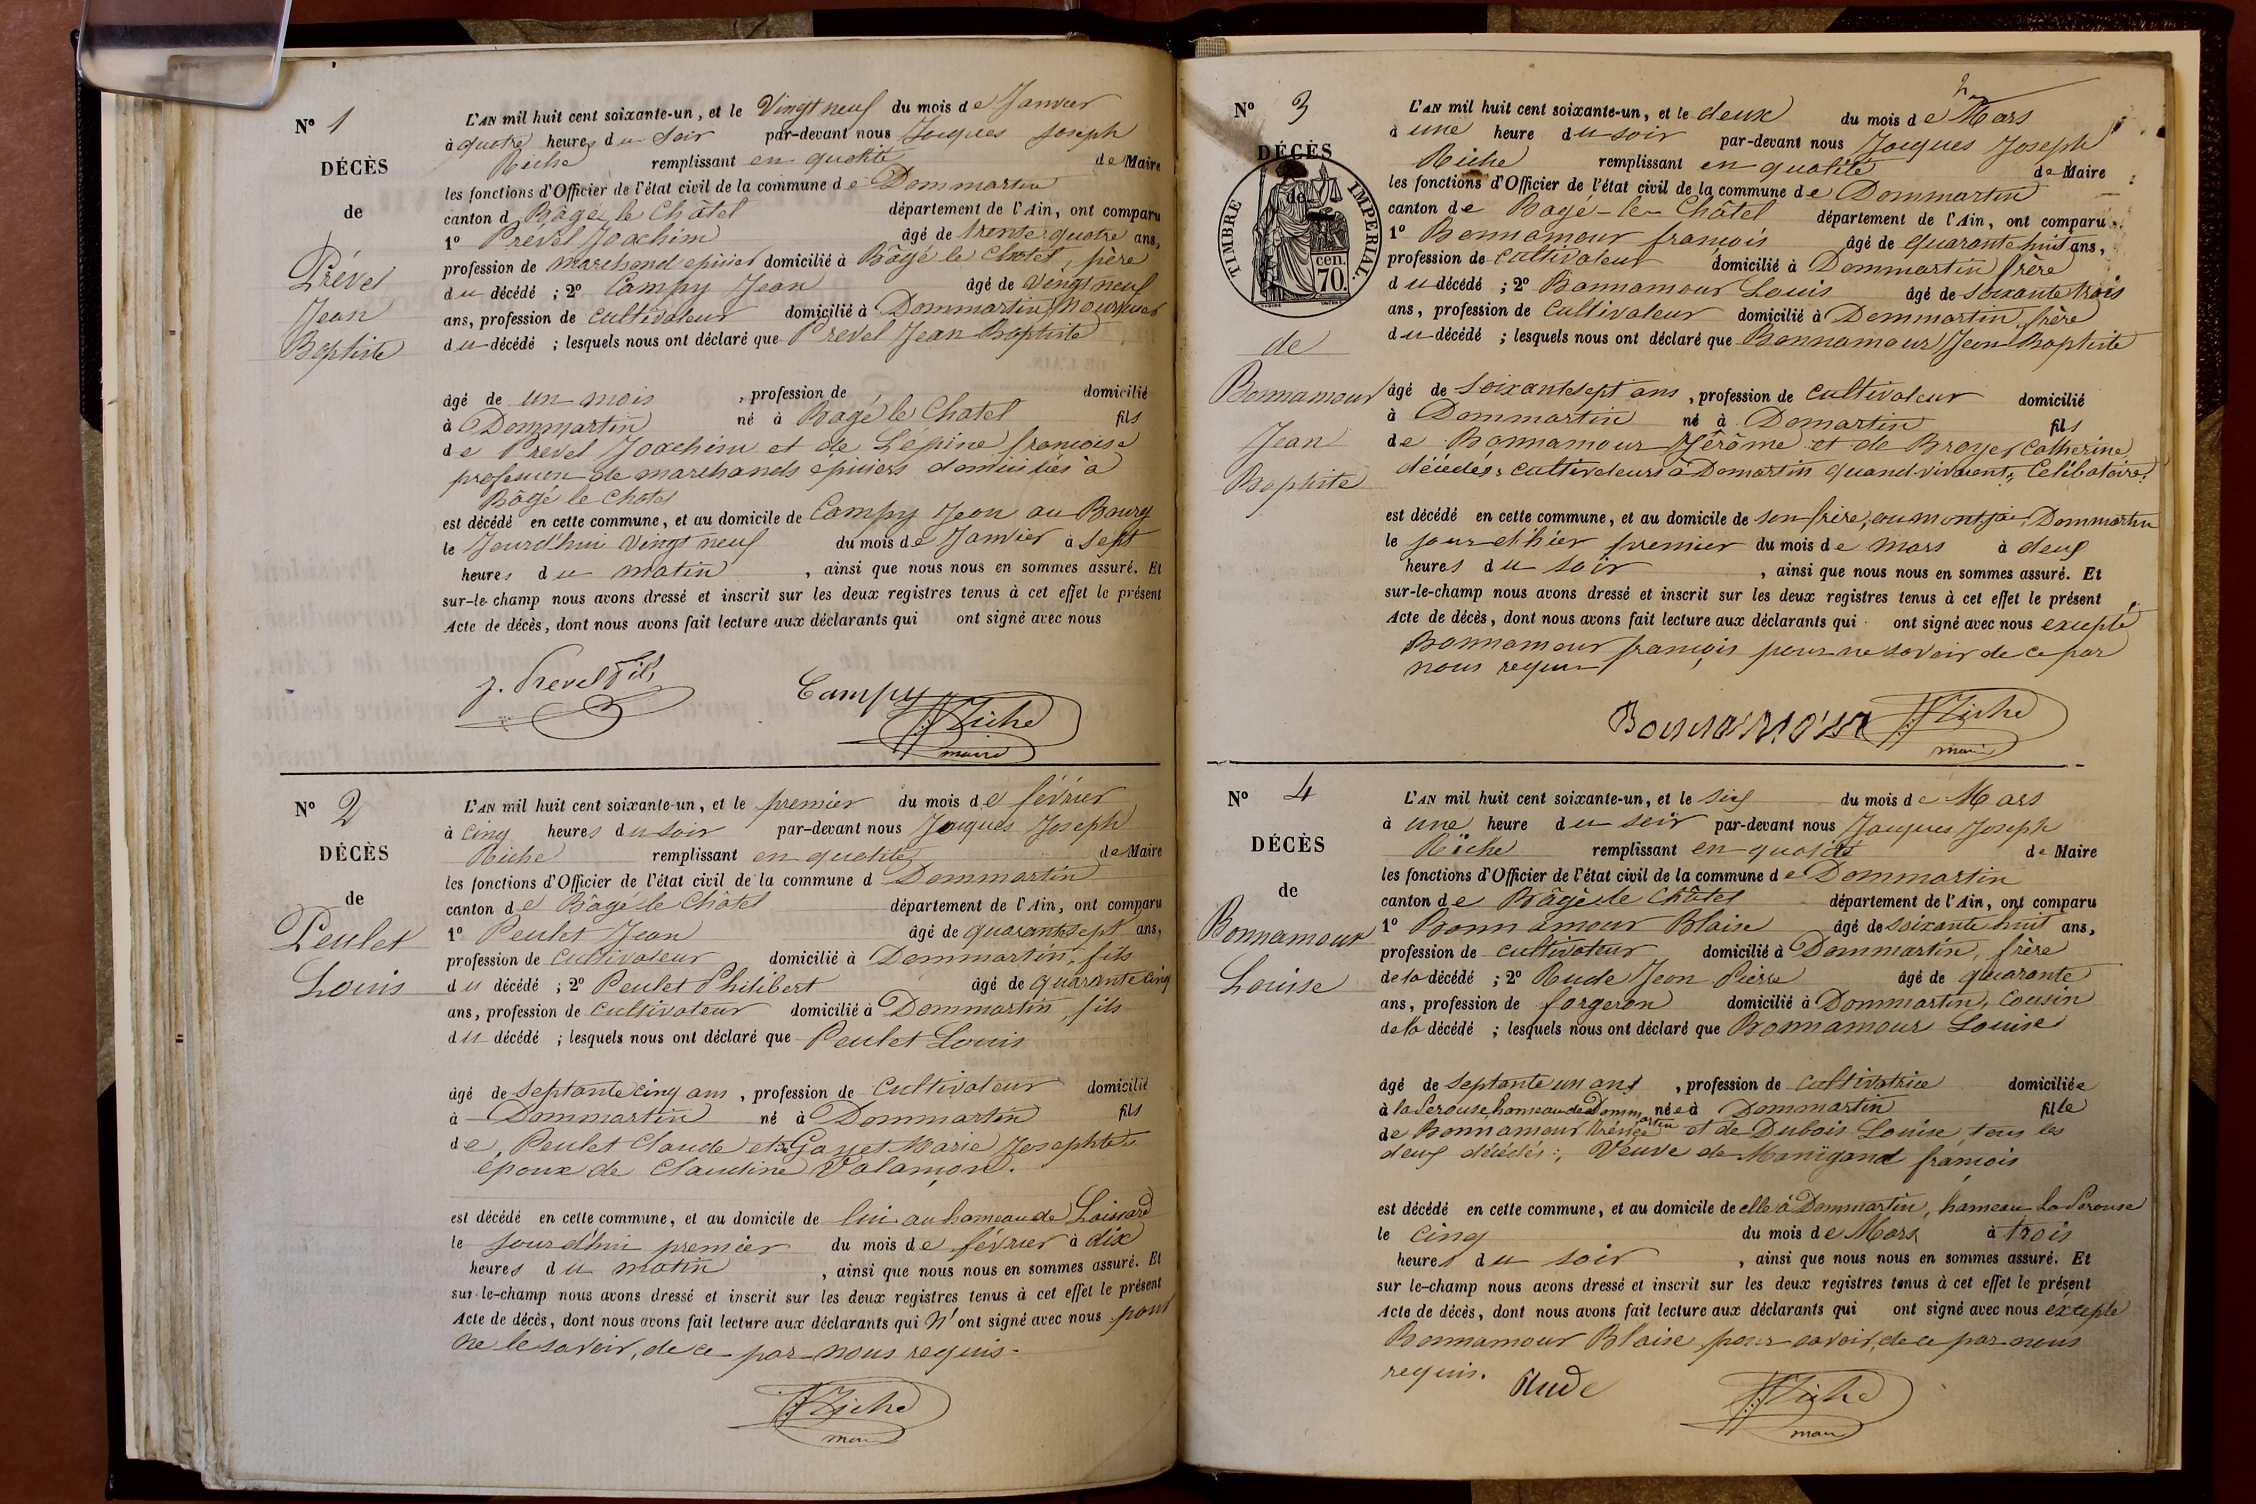 Nº 1
DÉCÈS
de
Prével
Jean
Baptiste
L'AN mil huit cent soixante-un, et le Vingt neuf du mois de Janvier
à quatre heures du Soir par-devant nous Jacques Joseph
Riche remplissant en qualité de Maire
les fonctions d'Officier de l'état civil de la commune de Dommartin
canton d Bâgé le Châtel département de l'Ain, ont comparu
1º Prével Joachim âgé de trente quatre ans,
profession de marchand epicier domicilié à Bâgé le Chatel, père
du décédé ; 2º Campy Jean âgé de Vingt neuf
ans, profession de cultivateur domicilié à Dommartin, Nourricier
du décédé ; lesquels nous ont déclaré que Prevel Jean Baptiste
âgé de un mois , profession de domicilié
à Dommartin né à Bagé le Chatel fils
de Prevel Joachim et de Lépine francoise
profession de marchands epiciers domiciliés à
Bâgé le Chatel
est décédé en cette commune, et au domicile de Campy Jean au Bourg
le Jourd'hui Vingt neuf du mois de Janvier à Sept
heures du matin , ainsi que nous nous en sommes assuré. Et
sur-le-champ nous avons dressé et inscrit sur les deux registres tenus à cet effet le présent
Acte de décès, dont nous avons fait lecture aux déclarants qui ont signé avec nous
J. Prevel Fils
Campy
Riche
maire
Nº 2
DÉCÈS
de
Peulet
Louis
L'AN mil huit cent soixante-un, et le premier du mois de février
à cinq heures du soir par-devant nous Jacques Joseph
Riche remplissant en qualité de Maire
les fonctions d'Officier de l'état civil de la commune d Dommartin
canton de Bâgé le Châtel département de l'Ain, ont comparu
1º Peulet Jean âgé de quarante sept ans,
profession de cultivateur domicilié à Dommartin, fils
du décédé ; 2º Peulet Philibert âgé de quarante cinq
ans, profession de cultivateur domicilié à Dommartin, fils
du décédé ; lesquels nous ont déclaré que Peulet Louis
âgé de septante cinq ans , profession de cultivateur domicilié
à Dommartin né à Dommartin fils
de Peulet Claude et de Gayet Marie Josephte
époux de Claudine Valançon.
est décédé en cette commune, et au domicile de lui au hameau de Loissard
le Jourd'hui premier du mois de février à dix
heures du matin , ainsi que nous nous en sommes assuré. Et
sur-le-champ nous avons dressé et inscrit sur les deux registres tenus à cet effet le présent
Acte de décès, dont nous avons fait lecture aux déclarants qui n'ont signé avec nous pour
ne le savoir, de ce par nous requis.
Riche
maire
Nº 3
DÉCÈS
de
TIMBRE IMPERIAL.
70 cen.
de
Bonnamour
Jean
Baptiste
L'AN mil huit cent soixante-un, et le deux du mois de Mars
à une heure du soir par-devant nous Jacques Joseph
Riche remplissant en qualité de Maire
les fonctions d'Officier de l'état civil de la commune de Dommartin
canton de Bagé-le-Châtel département de l'Ain, ont comparu
1º Bonnamour françois âgé de quarante huit ans,
profession de cultivateur domicilié à Dommartin frère
du décédé ; 2º Bonnamour Louis âgé de soixante trois
ans, profession de cultivateur domicilié à Dommartin, frère
du décédé ; lesquels nous ont déclaré que Bonnamour Jean Baptiste
âgé de soixante sept ans , profession de cultivateur domicilié
à Dommartin né à Domartin fils
de Bonnamour Jérôme et de Broyer Catherine
décédés cultivateurs à Domartin quand vivaient, Celibataire.
est décédé en cette commune, et au domicile de son frère, Dommartin
le jour d'hier premier du mois de mars à deux
heures du soir , ainsi que nous nous en sommes assuré. Et
sur-le-champ nous avons dressé et inscrit sur les deux registres tenus à cet effet le présent
Acte de décès, dont nous avons fait lecture aux déclarants qui ont signé avec nous excepté
Bonnamour françois pour ne savoir de ce par
nous requis
Bonnamour
Riche
maire
Nº 4
DÉCÈS
de
Bonnamour
Louise
L'AN mil huit cent soixante-un, et le six du mois de Mars
à une heure du soir par-devant nous Jacques Joseph
Riche remplissant en qualité de Maire
les fonctions d'Officier de l'état civil de la commune de Dommartin
canton de Bâgé le Châtel département de l'Ain, ont comparu
1º Bonnamour Blaise âgé de soixante huit ans,
profession de cultivateur domicilié à Dommartin, frère
de la décédé ; 2º Rude Jean Pierre âgé de quarante
ans, profession de forgeron domicilié à Dommartin, Cousin
de la décédé ; lesquels nous ont déclaré que Bonnamour Louise
âgé de septante un ans , profession de cultivatrice domiciliée
à la Serouse, hameau de Dommartin née à Dommartin fille
de Bonnamour et de Dubois Louise, tous les
deux décédés, Veuve de Manigand françois
est décédé en cette commune, et au domicile de elle à Dommartin, hameau La Serouse
le cinq du mois de Mars à trois
heures du soir , ainsi que nous nous en sommes assuré. Et
sur le-champ nous avons dressé et inscrit sur les deux registres tenus à cet effet le présent
Acte de décès, dont nous avons fait lecture aux déclarants qui ont signé avec nous excepté
Bonnamour Blaise pour savoir, de ce par nous
requis.
Rude
Riche
maire